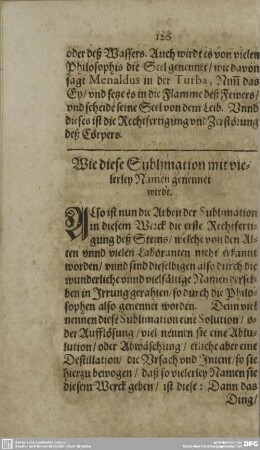 126
oder deß Wassers. Auch wirdt es von vielen
Philosophis die Seel genennet / wie davon
sagt Menaldus in der Turba, Nim̃ das
Ey / vnd setze es in die Flamme deß Fewers /
vnd scheide seine Seel von dem Leib. Vnnd
dieses ist die Rechtfertigung vnd Zerstörung
deß Cörpers.
Wie diese Sublimation mit vie-
lerley Namen genennet
wirdt.
Also ist nun die Arbeit der Sublimation
in diesem Werck die erste Rechtferti-
gung deß Steins / welche von den Al-
ten vnnd vielen Laboranten nicht erkannt
worden / vnnd sind dieselbigen also durch die
wunderliche vnnd vielfältige Namen dersel-
ben in Irrung gerahten / so durch die Philo-
sophen also genennet worden. Denn viel
nennen diese Sublimation eine Solution / o-
der Aufflösung / viel nennen sie eine Ablu-
lution / oder Abwäschung / etliche aber eine
Destillation / die Vrsach vnd Intent / so sie
hierzu bewogen / daß so vielerley Namen sie
diesem Werck geben / ist diese: Dann das
Ding /